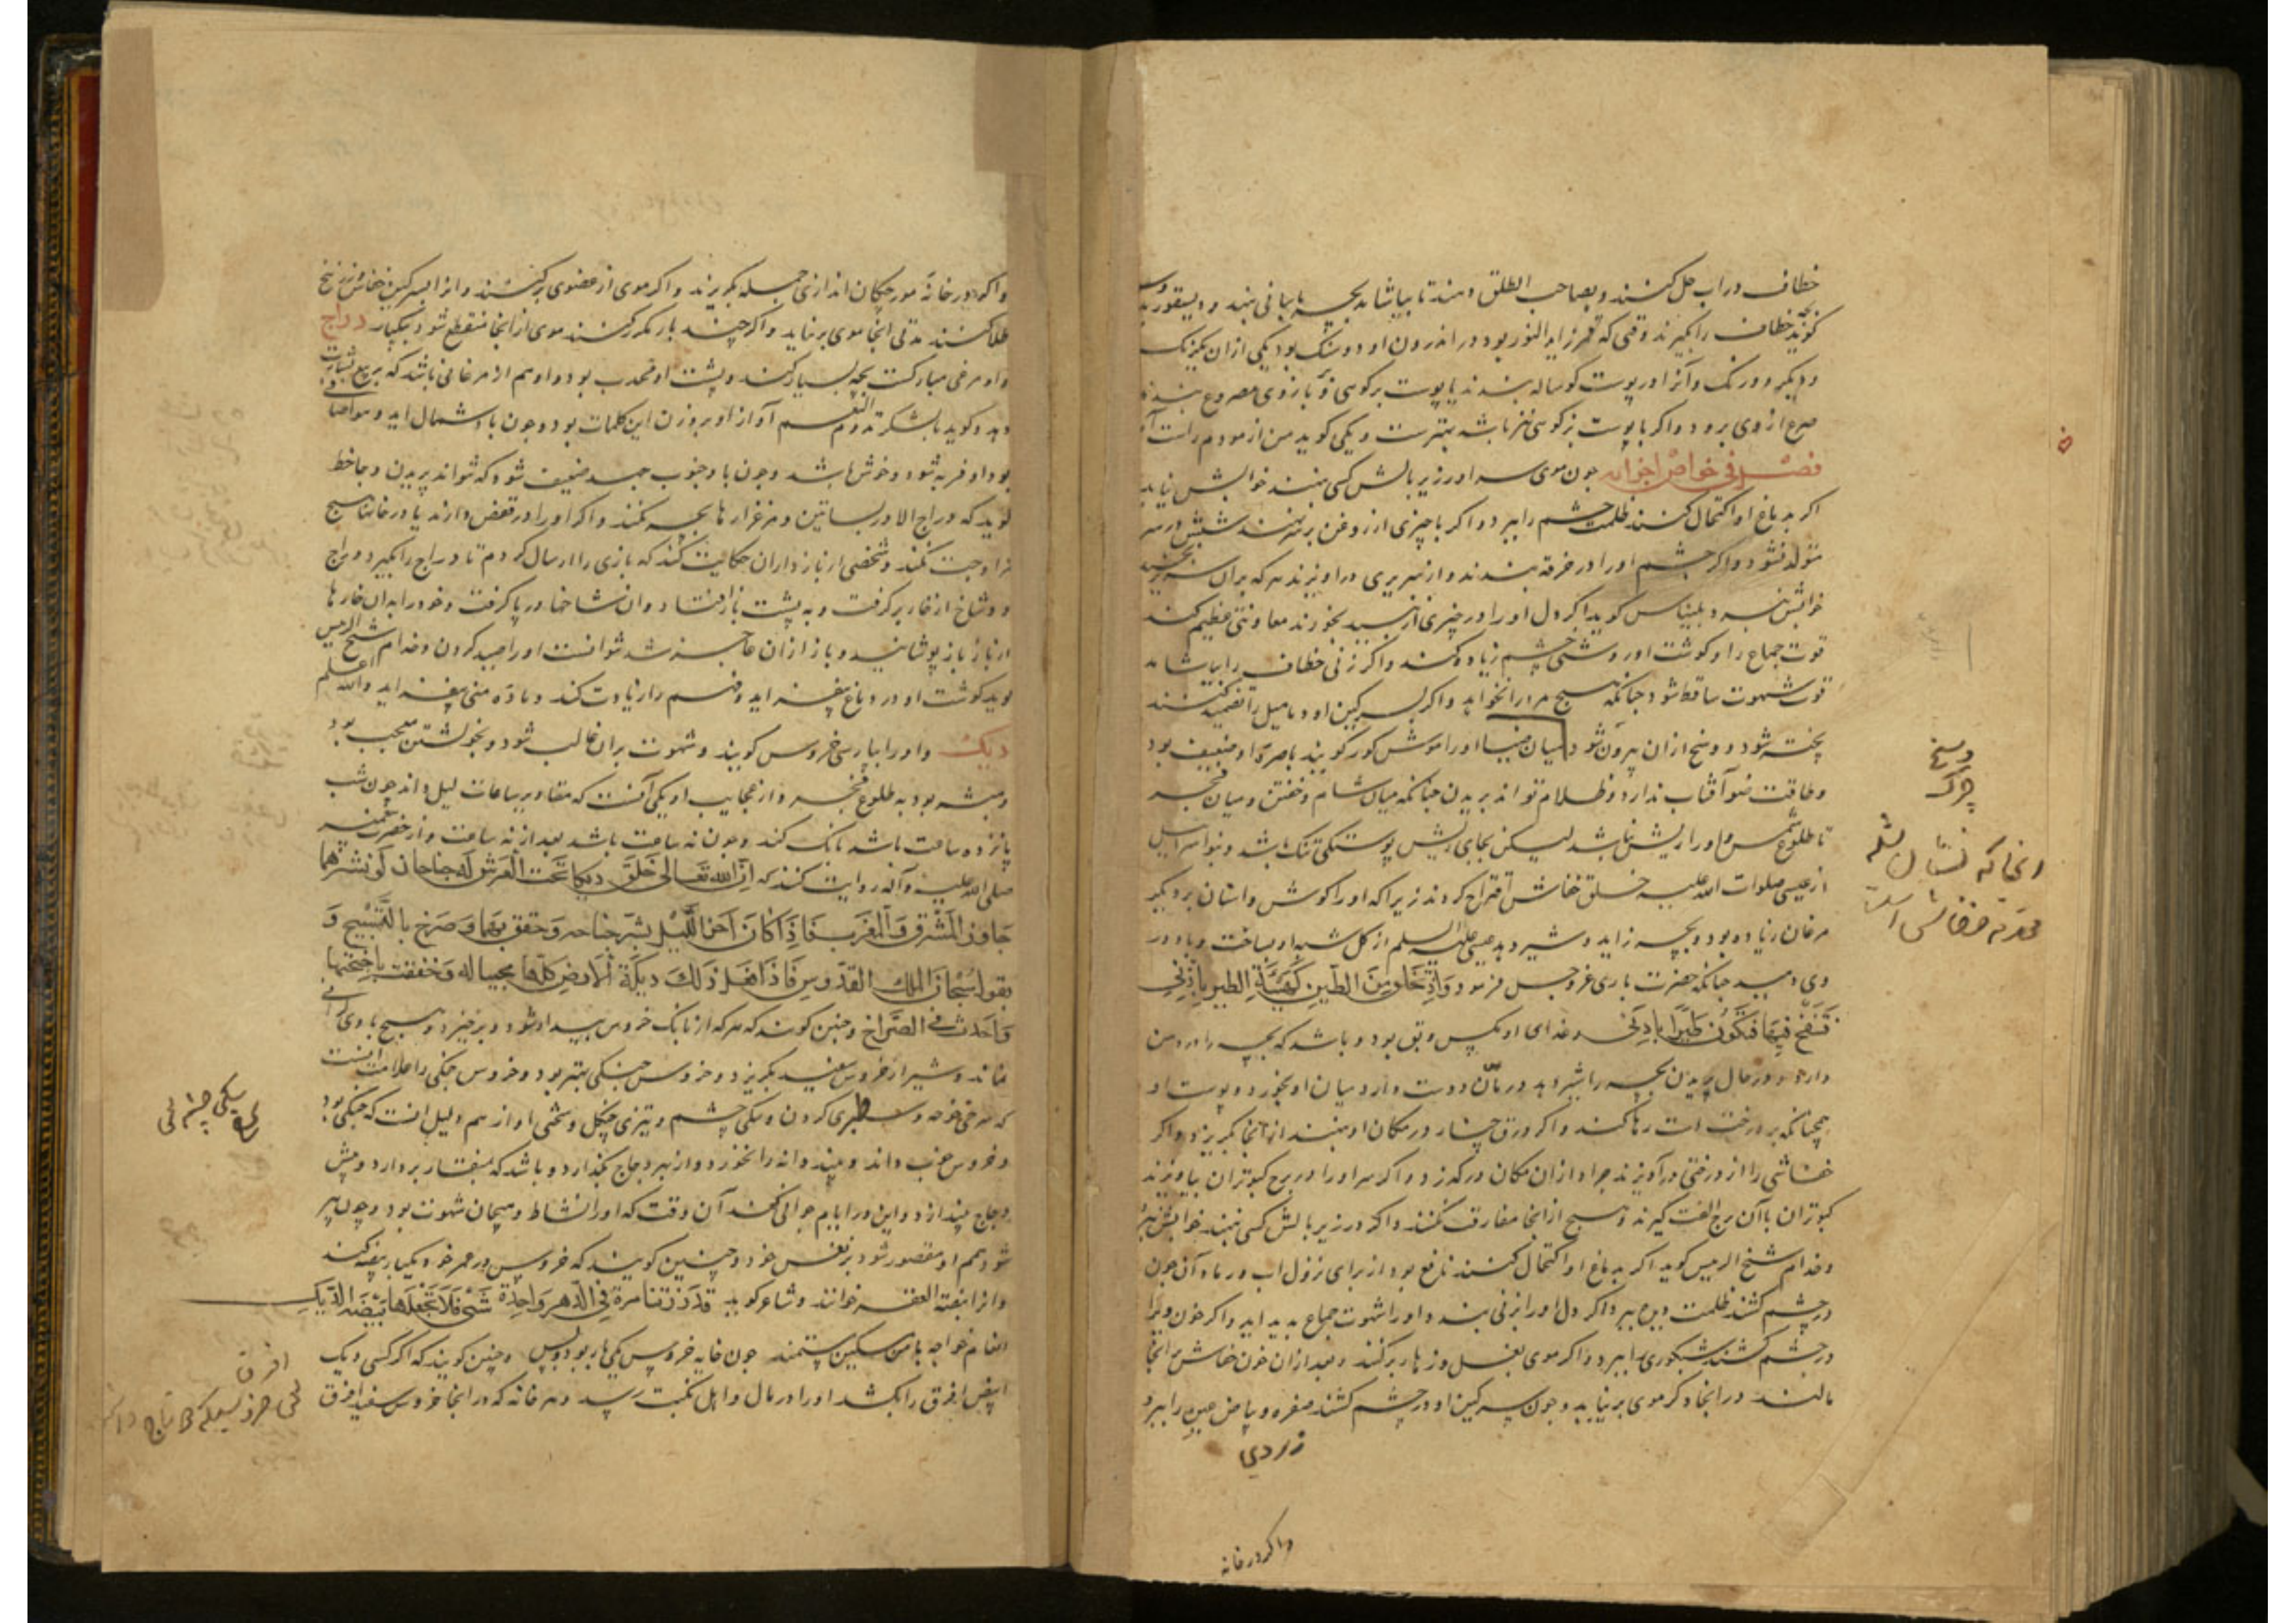 خطاف در اب حل کنند و بصاحب الطلق دهند تا بیاشامد بچه باسانی بنهد و دیسقوریدوس
کوید بچه خطاف را بکیرند وقتی که قمر زاید النور بود در اندرون او دو سنک بود یکی از ان یکرنک
و دیکر دو رنک و آنرا در پوست کوساله بندند یا پوست بز کوهی و بر بازوی مصروع بندند
صرع از وی برود و اکر با پوست بز کوهی نیز باشد بهترست و یکی کوید من ازمودم راست آمد
فصل فی خواص اجزائه چون موی سر او در زیر بالش کسی نهند خوابش نیاید
اکر بدماغ او اکتحال کنند ظلمت چشم را ببرد و اکر با چیزی از روغن بر سر نهند شپش در سر
متولد نشود و اکر چشم او را در خرقه بندند و از سریری در اویزند هر که بران سریر خسبد
خوابش نبرد و بلیناس کوید اکر دل او را در چیزی از نبید بخورند معاونتی عظیم کند
قوت جماع را و کوشت او روشنی چشم زیاده کند و اکر زنی خطاف را بیاشامد
قوت شهوت ساقط شود چنانکه هیچ مرد را نخواهد و اکر بسرکین او دمامیل را تضمید کنند
پخته شود و وسخ از ان بیرون شود او را موش کور کویند باصره او ضعیف بود
و طاقت ضوء آفتاب ندارد و در ظلام نتواند پریدن چنانکه میان شام و خفتن و میان فجر
تا طلوع شمس و او را ریش نباشد لیکن بجای ریش پوستکی تنک باشد و بنو اسراییل
از عیسی صلوات الله علیه خلق خفاش اقتراح کردند زیرا که او را کوش و اسنان بر دیکر
مرغان زیاده بود و بچه زاید و شیر دهد عیسی علیه السلم از کل شبه او بساخت و باد در
وی دمید چنانکه حضرت باری عز و جل فرمود وَاِذْ تَخْلُقُ مِنَ الطّینِ کَهَیْئَةِ الطیرِ بِاِذْنی
فَتَنْفُخُ فِیهَا فَتَکُونُ طَیْرًا بِاِذْنی و غذای او مکس و بق بود و باشد که بچه را در دهن
دارد و در حال پریدن بچه را شیر دهد و رمان دوست دارد میان او بخورد و پوست او
همچنانکه بر درخت است رها کند و اکر ورق چنار در مکان او نهند از انجا بکریزد و اکر
خفاشی را از درختی درآویزند جراد از ان مکان در کذرد و اکر سر او را در برج کبوتران بیاویزند
کبوتران با آن برج الفت کیرند و هیچ از انجا مفارقت نکنند و اکر در زیر بالش کسی نهند خوابش نبرد
و قدام شیخ الرییس کوید اکر بدماغ او اکتحال کنند نافع بود از برای نزول اب و رماد آن چون
در چشم کشند ظلمت دیده ببرد و اکر دل او را بر زنی بندند او را شهوت جماع پدید اید و اکر خون ویرا
در چشم کشند شبکوری را ببرد و اکر موی بغل و زهار برکنند و بعد از ان خون خفاش بر انجا
مالند در انجا دکر موی بر نیاید و چون سرکین او در چشم کشند صفره و بیاض عین را ببرد
زردی
واکر در خانه
وسخ
چرک
واکر در خانه مورچکان اندازی جمله بکریزند و اکر موی از عضوی برکنند و انرا بسرکین خفاش و زرنیخ
طلا کنند مدتی انجا موی برنیاید و اکر چند بار مکرر کنند موی از انجا منقطع شود بیکبار دراج
و او مرغی مبارکست بچه بسیار کند و پشت او محدب بود و او هم از مرغانی باشد که بربیع بشارت
دهد و کوید بالشکر تدوم النعم آواز او بر وزن این کلمات بود و چون باد شمال اید و هوا صافی
بود او فربه شود و خوش باشد و چون باد جنوب جهد ضعیف شود که نتواند پریدن و جاحظ
کوید که دراج الا در بساتین و مرغزارها بچه نکند و اکر او را در قفص دارند یا در خانها هیچ
مزاوجت نکند و شخصی از بازداران حکایت کند که بازی را ارسال کردم تا دراج را بکیرد دراج
دو شاخ از خار بر کرفت و به پشت باز افتاد و ان شاخها در پا کرفت و خود را بدان خارها
از باز باز پوشانید و باز از ان عاجز شد نتوانست او را صید کردن و قدام شیخ الرییس
کوید کوشت او در دماغ بیفزاید و فهم را زیادت کند و ماده منی بیفزاید والله اعلم
دیک و او را بپارسی خروس کویند و شهوت بران غالب شود و بخویشتن معجب بود
و مبشر بود به طلوع فجر و از عجایب او یکی آنست که مقادیر ساعات لیل داند چون شب
پانزده ساعت باشد بانک کند و چون نه ساعت باشد بعد از نه ساعت و از حضرت پیغمبر
صلی الله علیه وآله روایت کنند که اِنَّ اللهَ تَعَالی خَلَقَ دیکا تَحتَ العَرش لَهُ جناحان لَو نَشَرَهُما
جَاوَزَ المَشْرِقَ وَالْمَغْرِبَ فَاِذَا کَانَ آخرُ اللَّیْلِ نشرَ جناحه وَ خفق بهما وَ صَرَخَ بالتَّسْبیحِ وَ
یقول سُبْحَانَ المَلِکِ القدّوسِ فَاِذَا فعَلَ ذلکَ دیکَةُ الْاَرضِ کلّها مجیبا له وَ خفقت باجنحتها
وَاَخَذَتْ فی الصُّرَاخ و چنین کویند که هر که از بانک خروس بیدار شود و برخیزد هیچ با وی کرانی
نماند و شیر از خروس سفید بکریزد و خروس جنکی بهتر بود و خروس جنکی را علامت اینست
که سرخی خوجه و سطبری کردن و تنکی چشم و تیزی چنکل و سختی اواز هم دلیل انست که جنکی بود
و خروس خوب داند و دانه را نخورد و از بهر دجاج بکذارد و باشد که بمنقار بردارد و پیش
دجاج بیندازد و این در ایام جوانی کند آن وقت که او را نشاط و هیجان شهوت بود و چون پیر
شود همم او مقصور شود بر نفس خود و چنین کویند که خروس در عمر خود یکبار بیضه کند
و انرا بیضة العقر خوانند و شاعر کوید قَد زُرْتنا مرةً فِی الدَّهرِ وَاحِدَةً ثَنّی فَلَا تَجْعَلْهَا بَیْضَةَ الدّیکِ
انعام خواجه با من مسکین مستمند چون خایه خروس یکی بار بود و بس و چنین کویند که اکر کسی دیک
ابیض افرق را بکشد او را در مال و اهل نکبت رسد و هر خانه که در انجا خروس سفید افرق
افرق